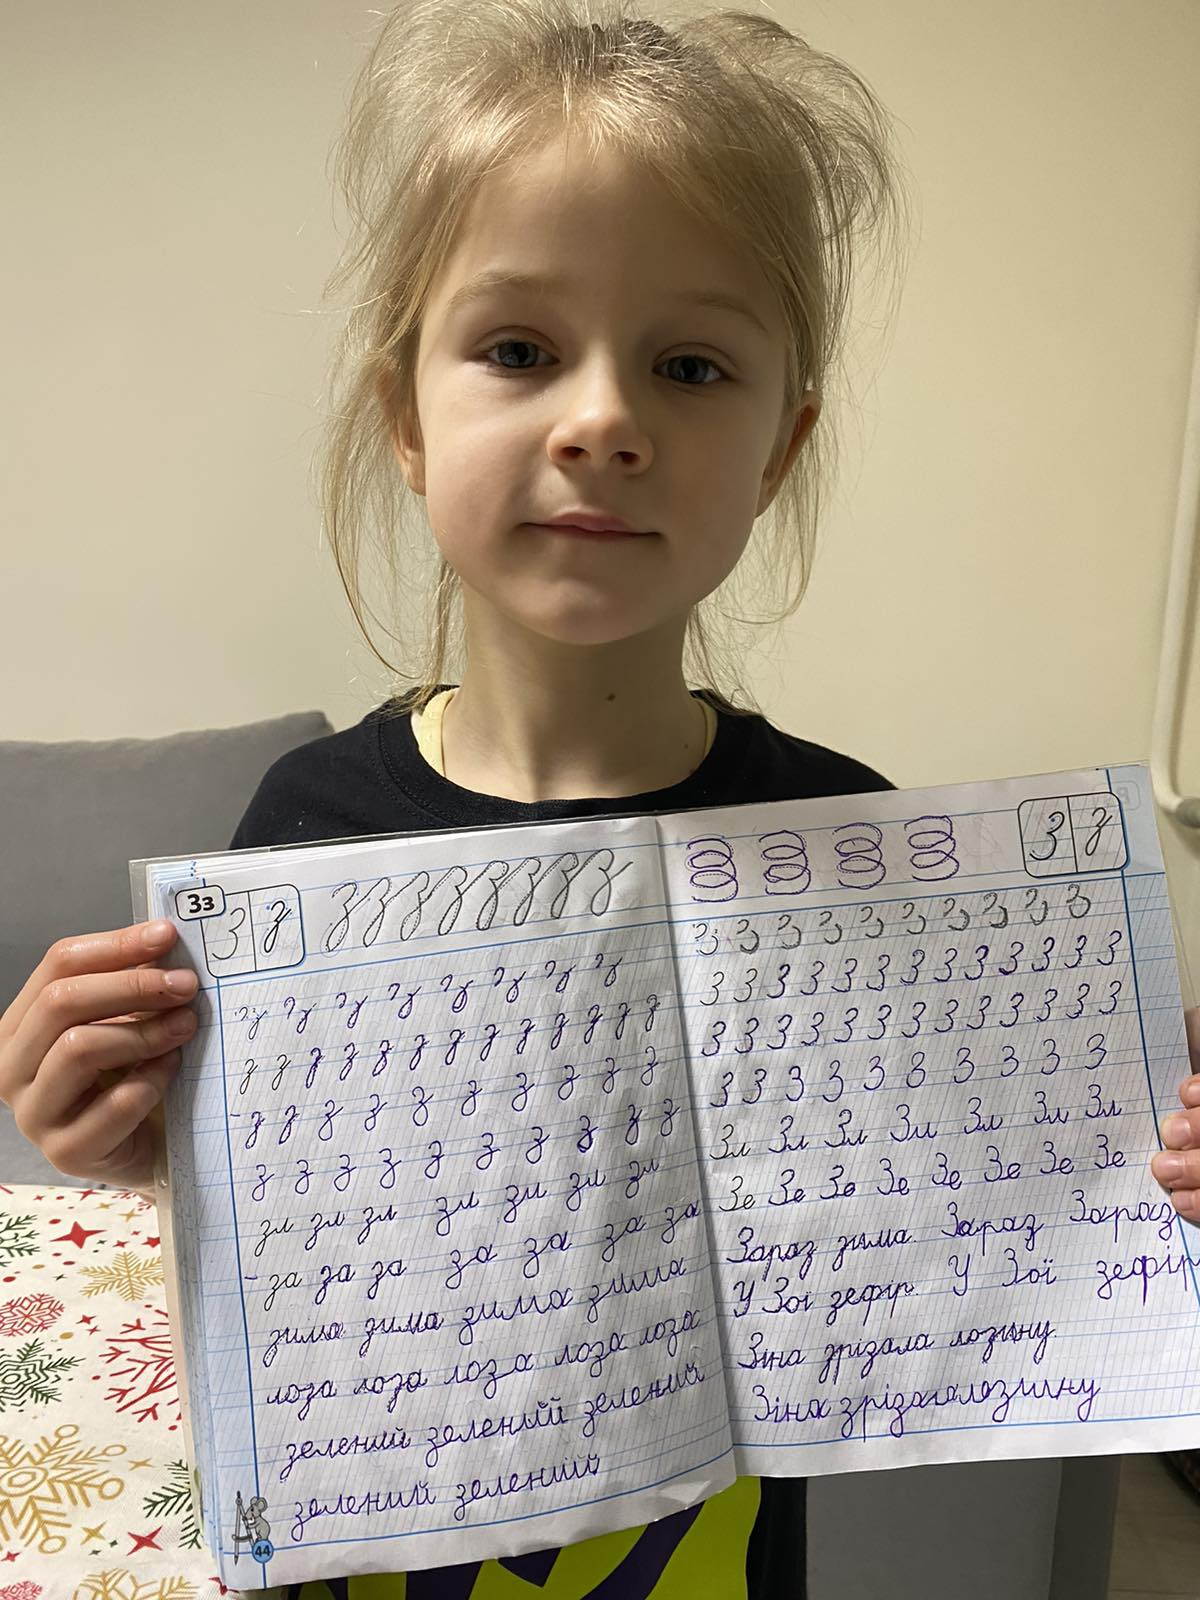 Зз
З з
з з з з з з з з
з з з з з з з з
з з з з з з з з з з з з з
з з з з з з з з з з
з з з з з з з з з з
зл зл зл зл зл зл зл
за за за за за за за
зима зима зима зима
лоза лоза лоза лоза лоза
зелений зелений зелений
зелений зелений
44
З з
З З З З З З З З З З
З З З З З З З З З З З З З
З З З З З З З З З З З З З
З З З З З З З З З З
Зл Зл Зл Зл Зл Зл Зл
Зе Зе Зе Зе Зе Зе Зе Зе
Зараз зима. Зараз Зараз
У Зої зефір. У Зої зефір
Зіна зрізала лозину.
Зіна зрізала лозину